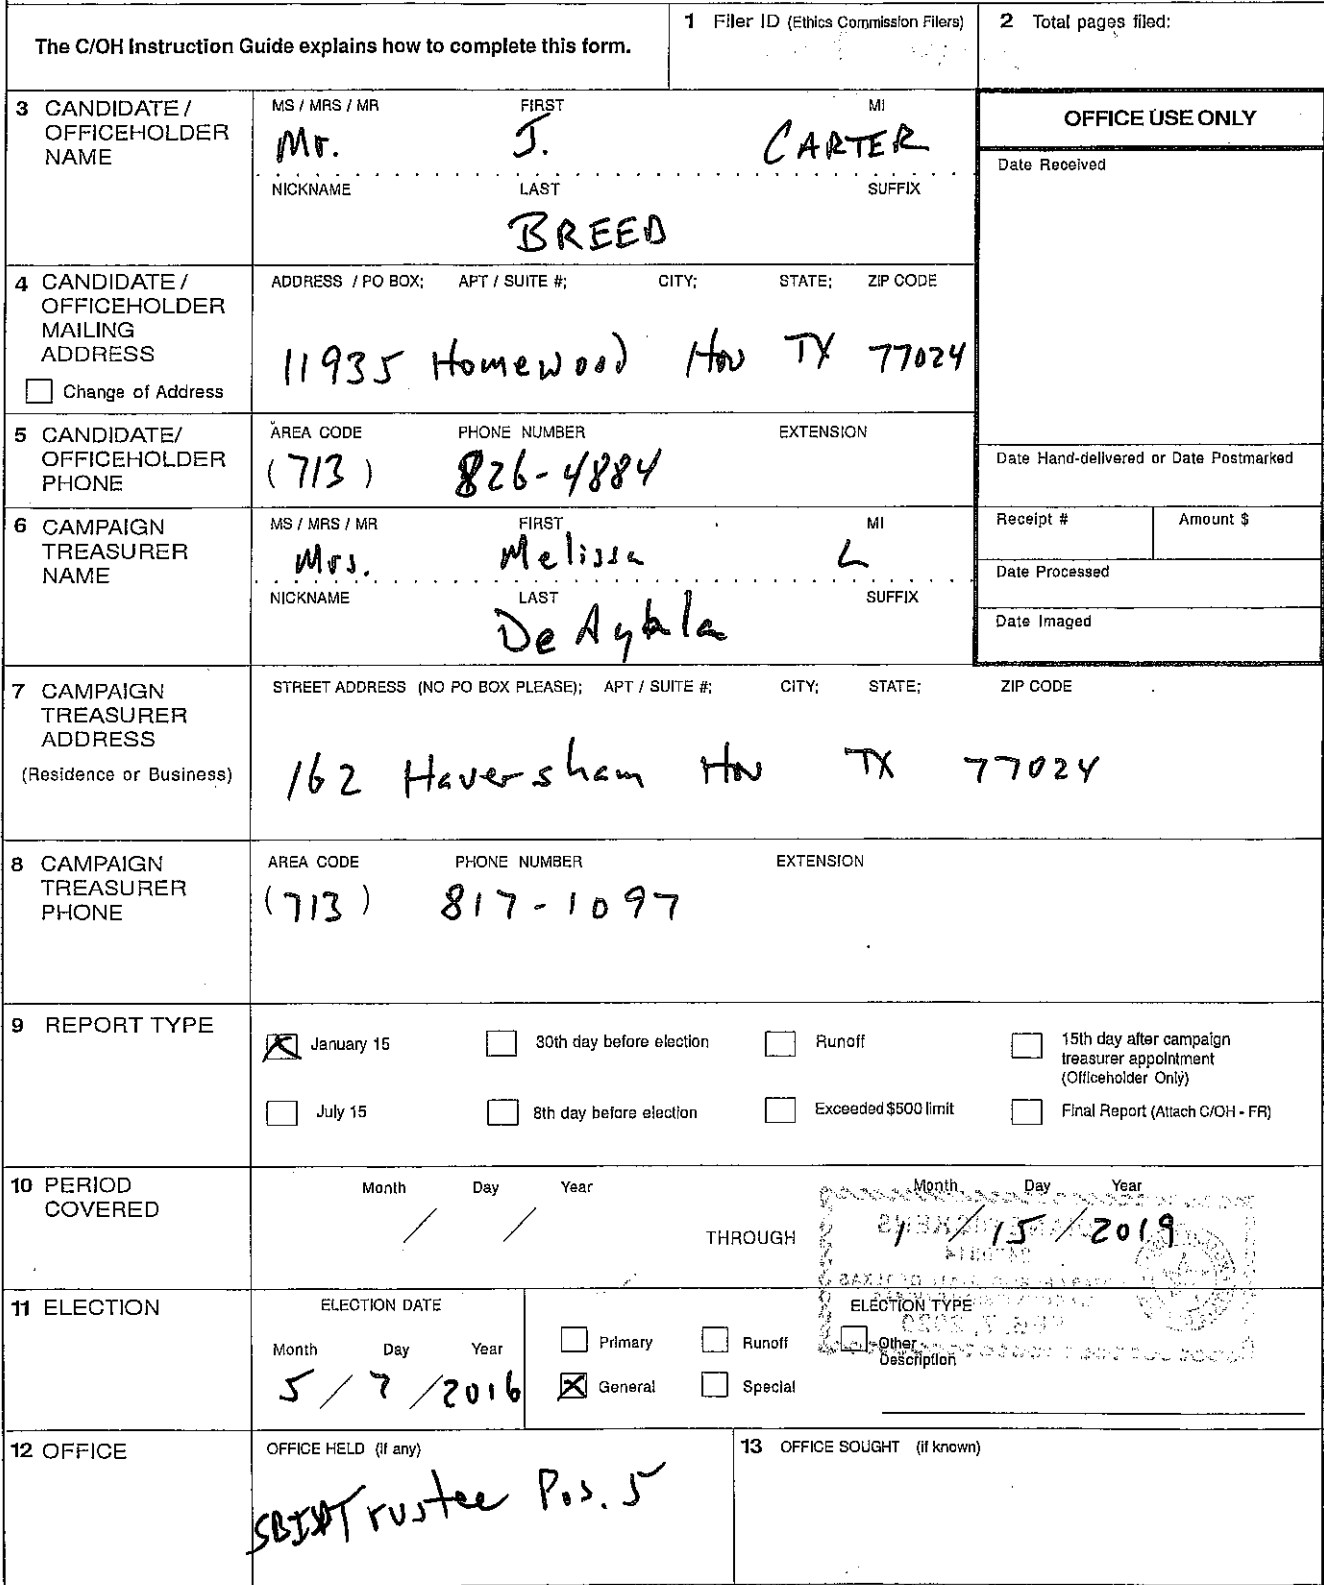 The C/OH Instruction Guide explains how to complete this form.
1 Filer ID (Ethics Commission Filers)
2 Total pages filed:
3 CANDIDATE / OFFICEHOLDER NAME
MS / MRS / MR FIRST MI
Mr. J. CARTER
NICKNAME LAST SUFFIX
BREED
OFFICE USE ONLY
Date Received
4 CANDIDATE / OFFICEHOLDER MAILING ADDRESS
Change of Address
ADDRESS / PO BOX; APT / SUITE #; CITY; STATE; ZIP CODE
11935 Homewood Hou TX 77024
5 CANDIDATE/ OFFICEHOLDER PHONE
AREA CODE PHONE NUMBER EXTENSION
(713) 826-4884
Date Hand-delivered or Date Postmarked
6 CAMPAIGN TREASURER NAME
MS / MRS / MR FIRST MI
Mrs. Melissa L
NICKNAME LAST SUFFIX
De Ayala
Receipt # Amount $
Date Processed
Date Imaged
7 CAMPAIGN TREASURER ADDRESS
(Residence or Business)
STREET ADDRESS (NO PO BOX PLEASE); APT / SUITE #; CITY; STATE; ZIP CODE
162 Haversham Hou TX 77024
8 CAMPAIGN TREASURER PHONE
AREA CODE PHONE NUMBER EXTENSION
(713) 817-1097
9 REPORT TYPE
January 15 30th day before election Runoff 15th day after campaign treasurer appointment (Officeholder Only)
July 15 8th day before election Exceeded $500 limit Final Report (Attach C/OH - FR)
10 PERIOD COVERED
Month Day Year
/ /
THROUGH
Month Day Year
1 / 15 / 2019
11 ELECTION
ELECTION DATE
Month Day Year
5 / 7 / 2016
ELECTION TYPE
Primary Runoff Other Description
General Special
12 OFFICE
OFFICE HELD (if any)
SBISD Trustee Pos. 5
13 OFFICE SOUGHT (if known)